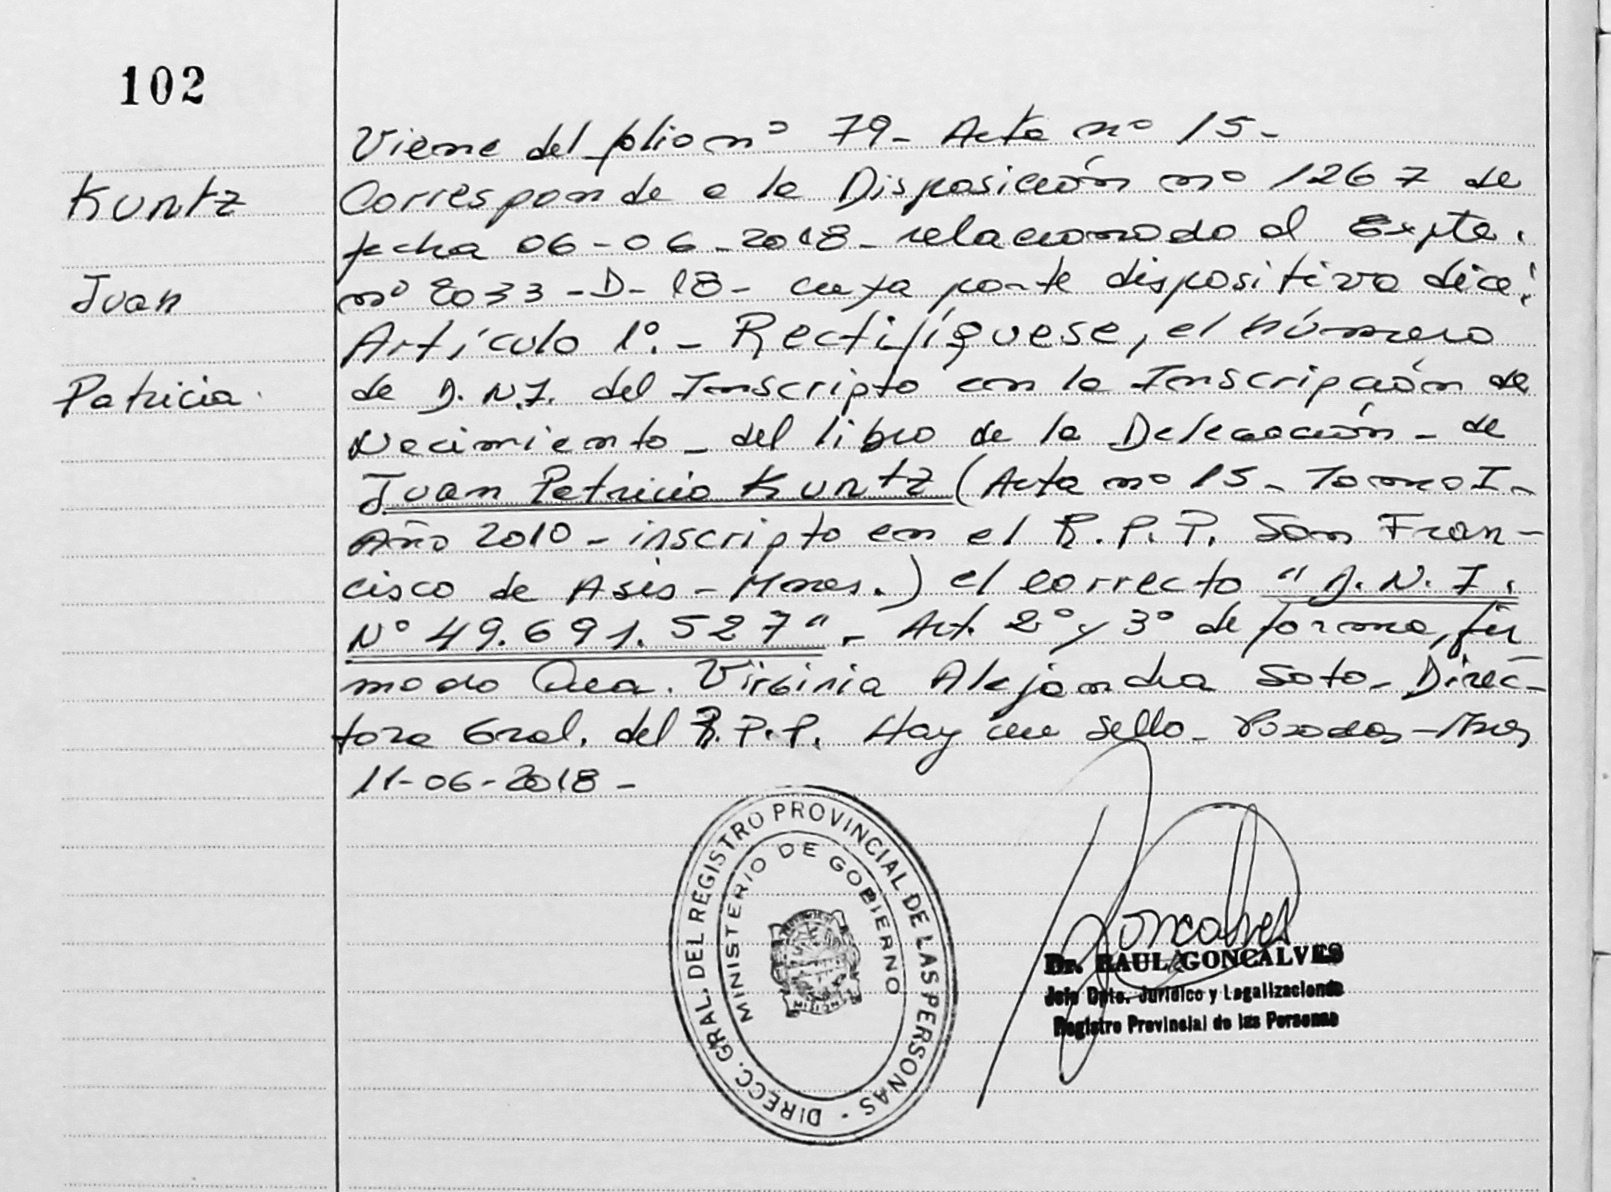 102
Kuntz
Juan
Patricia.
Viene del folio nº 79- Acta nº 15-
Corresponde a la Disposición nº 1267 de
fecha 06-06-2018- relacionado al Expte.
nº 2033-D-18- cuya parte dispositiva dice:
Artículo 1º.- Rectifíquese, el número
de D.N.I. del Inscripto con la Inscripción de
Nacimiento- del libro de la Delegación- de
Juan Patricio Kuntz (Acta nº 15- Tomo I-
Año 2010- inscripto en el R.P.P. San Fran-
cisco de Asís- Mnes.) el correcto "D.N.I.
Nº 49.691.527"- Art. 2º y 3º de forma, fir
mado Dra. Virginia Alejandra Soto- Direc-
tora Gral. del R.P.P. Hay un sello- Posadas- Mnes
11-06-2018-
DIRECC. GRAL. DEL REGISTRO PROVINCIAL DE LAS PERSONAS -
MINISTERIO DE GOBIERNO
MISIONES
Goncalves
Dr. RAUL GONCALVES
Jefe Dpto. Jurídico y Legalizaciones
Registro Provincial de las Personas